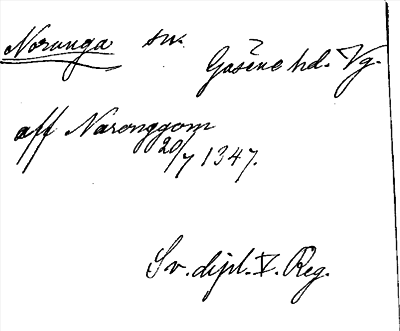 Noranga sn.
Gäsene hd. Vg.
aff Naronggom
20/7 1347.
Sv. dipl. V. Reg.